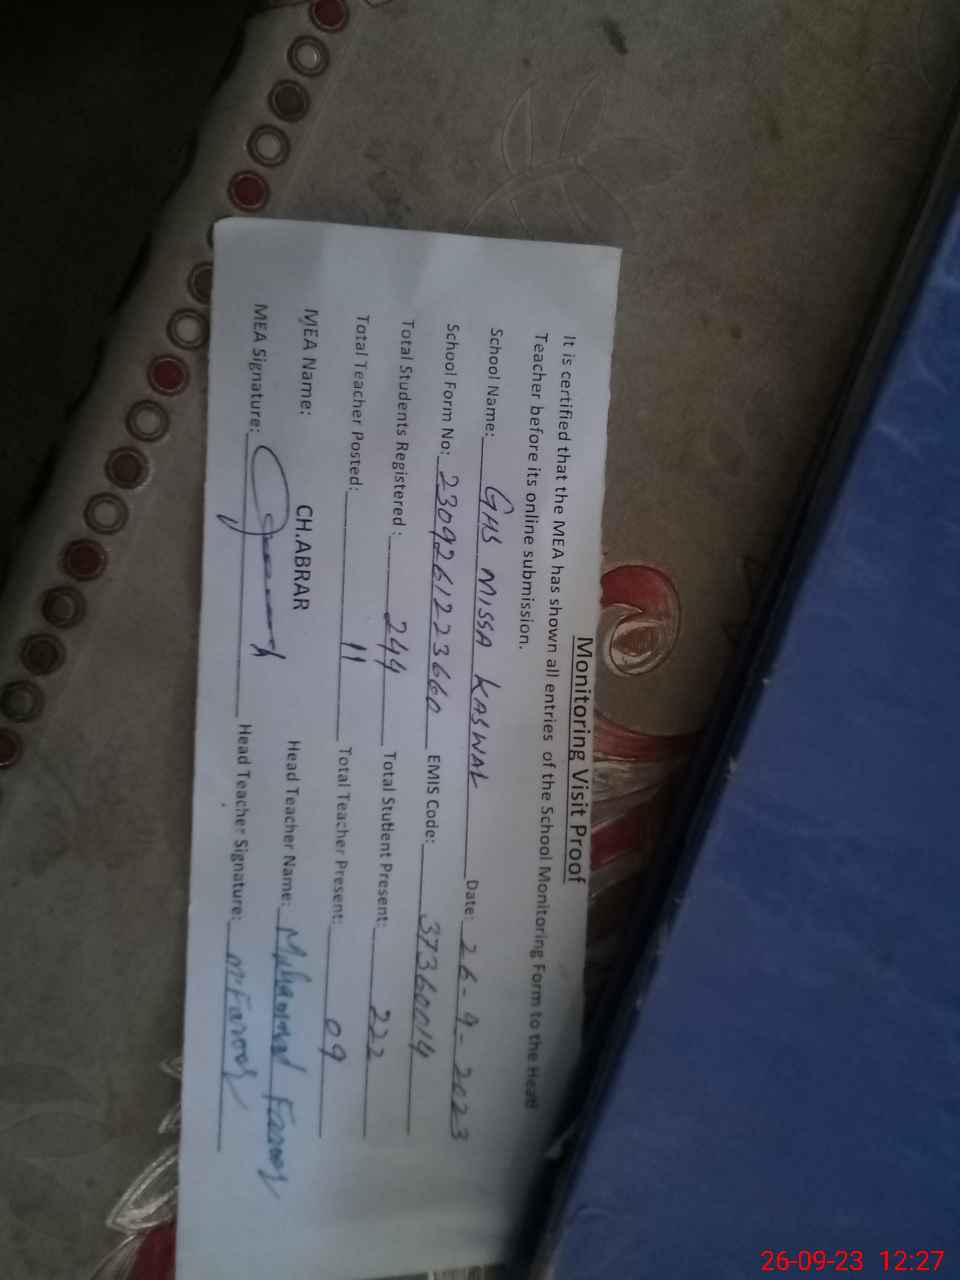 Monitoring Visit Proof
It is certified that the MEA has shown all entries of the School Monitoring Form to the Head
Teacher before its online submission.
School Name: GHS MISSA KASWAL Date: 26-9-2023
School Form No: 2309261223660 EMIS Code: 37360014
Total Students Registered: 244 Total Student Present: 222
Total Teacher Posted: 11 Total Teacher Present: 09
MEA Name: CH.ABRAR Head Teacher Name: Muhammad Farooq
MEA Signature: Head Teacher Signature: M.Farooq
26-09-23 12:27